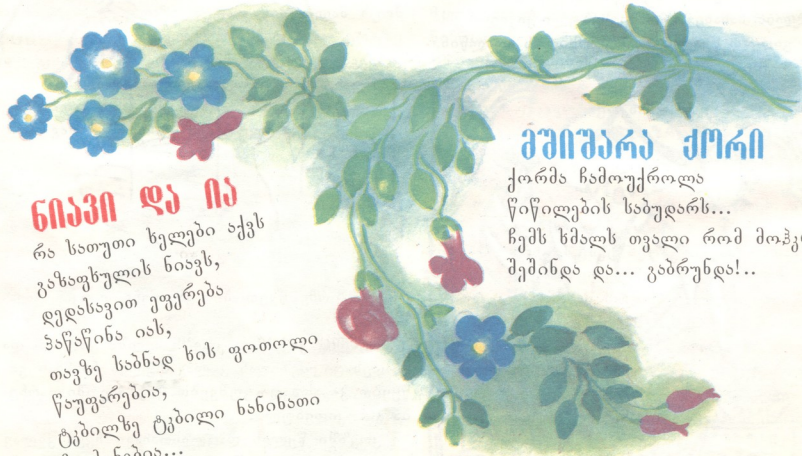 ნიავი და ია
რა სათუთი ხელები აქვს
გაზაფხულის ნიავს,
დედასავით ეფერება
პაწაწინა იას,
თავზე საბნად ხის ფოთოლი
წაუფარებია,
ტკბილზე ტკბილი ნანინათი
მშიშარა ქორი
ქორმა ჩამოუქროლა
წიწილების საბუდარს...
ჩემს ხმალს თვალი რომ
შეშინდა და... გაბრუნდა!..